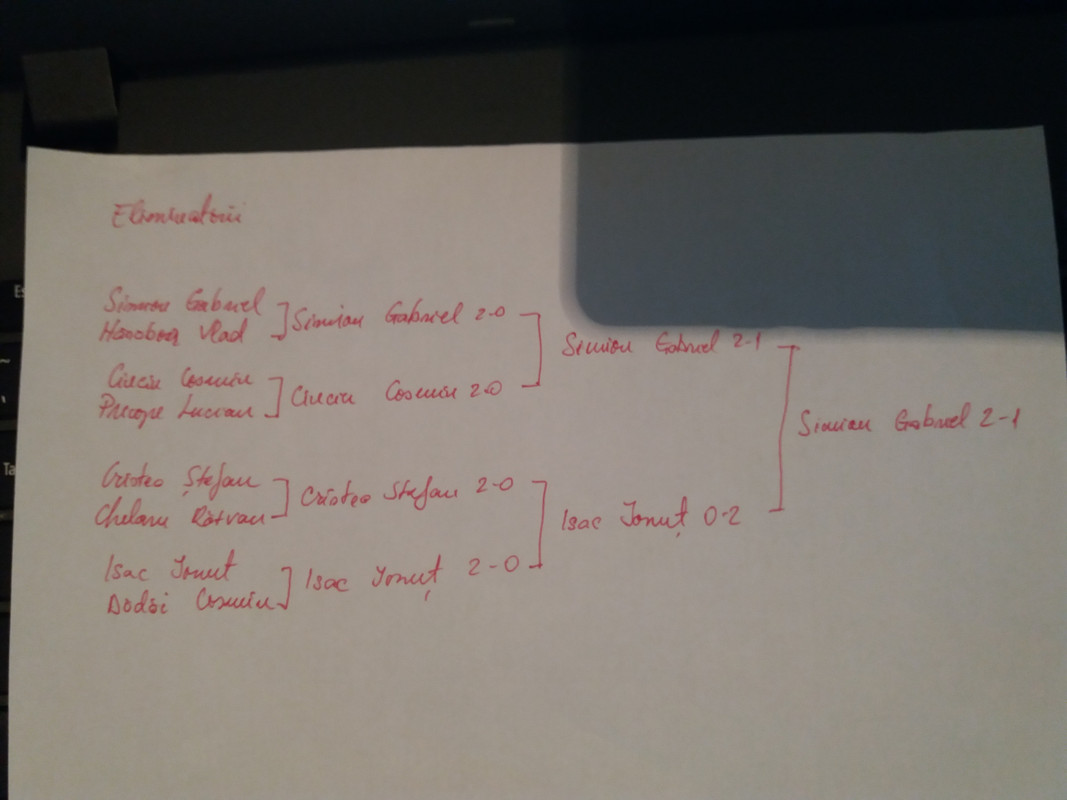 Eliminatorii
Simion Gabriel
Vlad
Simion Gabriel 2-0
Ciuciu Cosmin
Precope Lucian
Ciuciu Cosmin 2-0
Simion Gabriel 2-1
Cristea Ștefan
Chelaru Răzvan
Cristea Stefan 2-0
Isac Ionut
Cosmin
Isac Ionuț 2-0
Isac Ionuț 0-2
Simion Gabriel 2-1